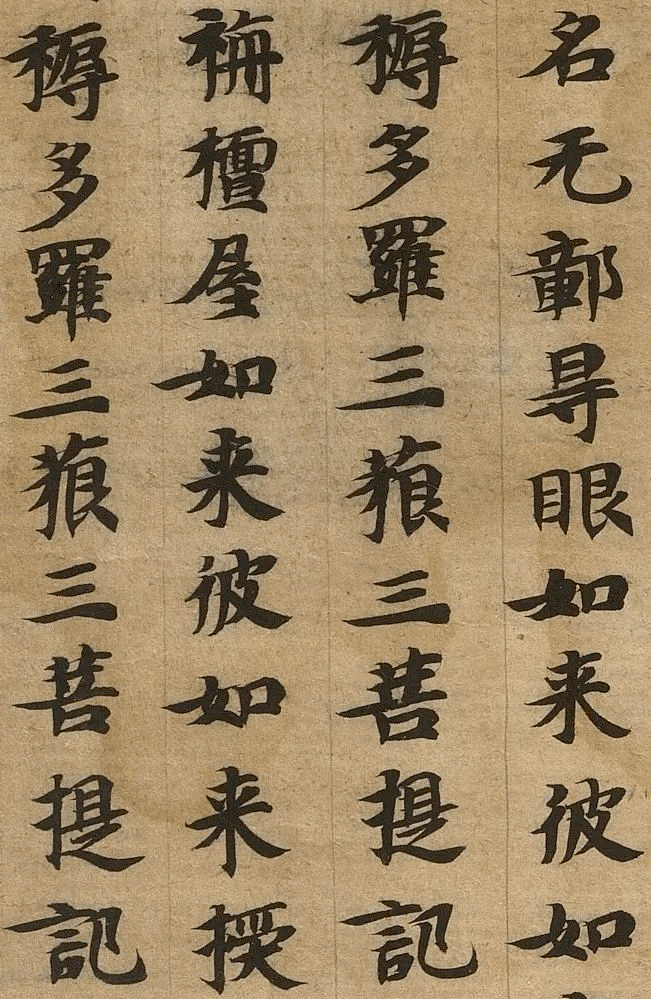 名无鄣㝵眼如来彼如
耨多羅三藐三菩提記
栴檀屋如来彼如来授
耨多羅三藐三菩提記